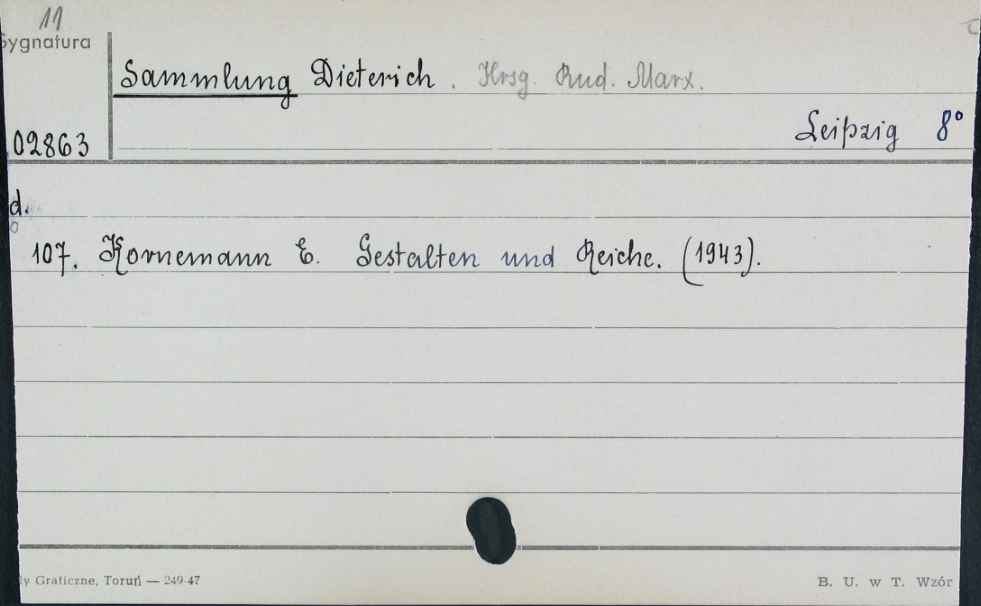 11
Sygnatura
Sammlung Dieterich. Hrsg. Rud. Marx.
02863
Leipzig 8°
d.
107. Kornemann E. Gestalten und Reiche. (1943).
y Graficzne, Toruń — 249-47
B. U. w T. Wzór